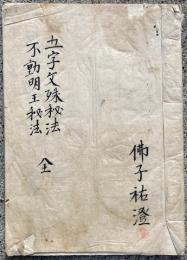 五字文殊秘法
不動明王秘法
全
佛子祐澄